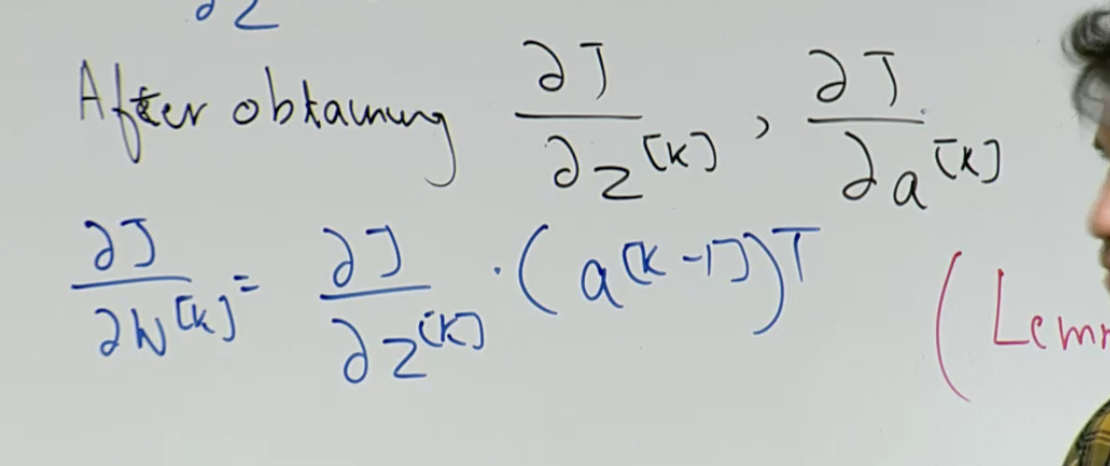 ∂z
After obtaining ∂J/∂z^[k], ∂J/∂a^[k]
∂J/∂W^[k] = ∂J/∂z^[k] · (a^[k-1])^T (Lem